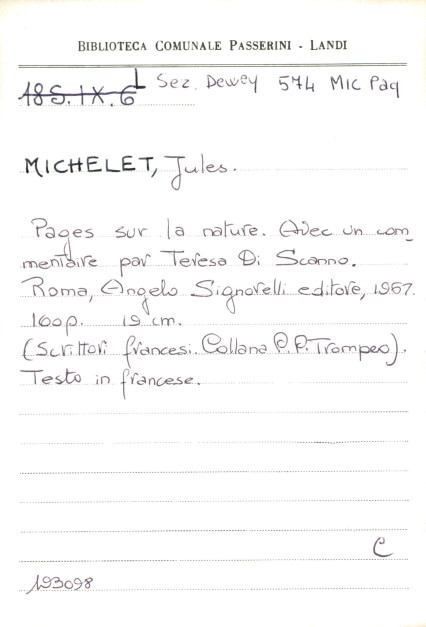 BIBLIOTECA COMUNALE PASSERINI - LANDI
18 S.IX.6 L Sez. Dewey 574 MIC Pag
MICHELET, Jules.
Pages sur la nature. Avec un com_
mentaire par Teresa Di Scanno.
Roma, Angelo Signorelli editore, 1967.
160p. 19 cm.
(Scrittori francesi. Collana P.P. Trompeo).
Testo in francese.
C
193098